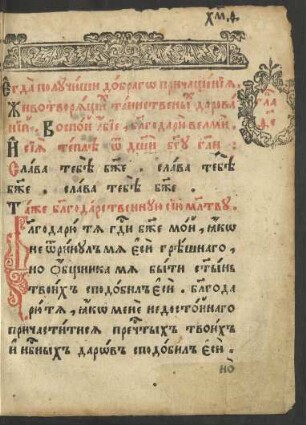 Егда́ полꙋчи́ши до́брагѡ причаще́нїѧ
Животворѧ́щихъ таи́нственныⷯ дарова́
нїй. Воспо́й а҆́бїе, благодари́ вельмѝ.
И҆ сїѧ̑ те́плѣ ѿ дꙋшѝ бг҃ꙋ гл҃и:
Сла́ва тебѣ̀ бж҃е. сла́ва тебѣ̀
бж҃е. сла́ва тебѣ̀ бж҃е.
Та́же благода́рственнꙋю сїю̀ мл҃твꙋ.
Благодарю́ тѧ гдⷭ҇и бж҃е мо́й, ꙗ҆́кѡ
не ѿри́нꙋлъ мѧ є҆сѝ грѣ́шнаго,
но ѻ҆́бщника мѧ бы́ти ст҃ы́нь
твои́хъ сподо́билъ є҆сѝ. благода
рю́ тѧ, ꙗ҆́кѡ менѐ недосто́йнаго
причасти́тисѧ пречⷭ҇тыхъ твои́хъ
и҆ нбⷭ҇ныхъ дарѡ́въ сподо́билъ є҆сѝ.
но